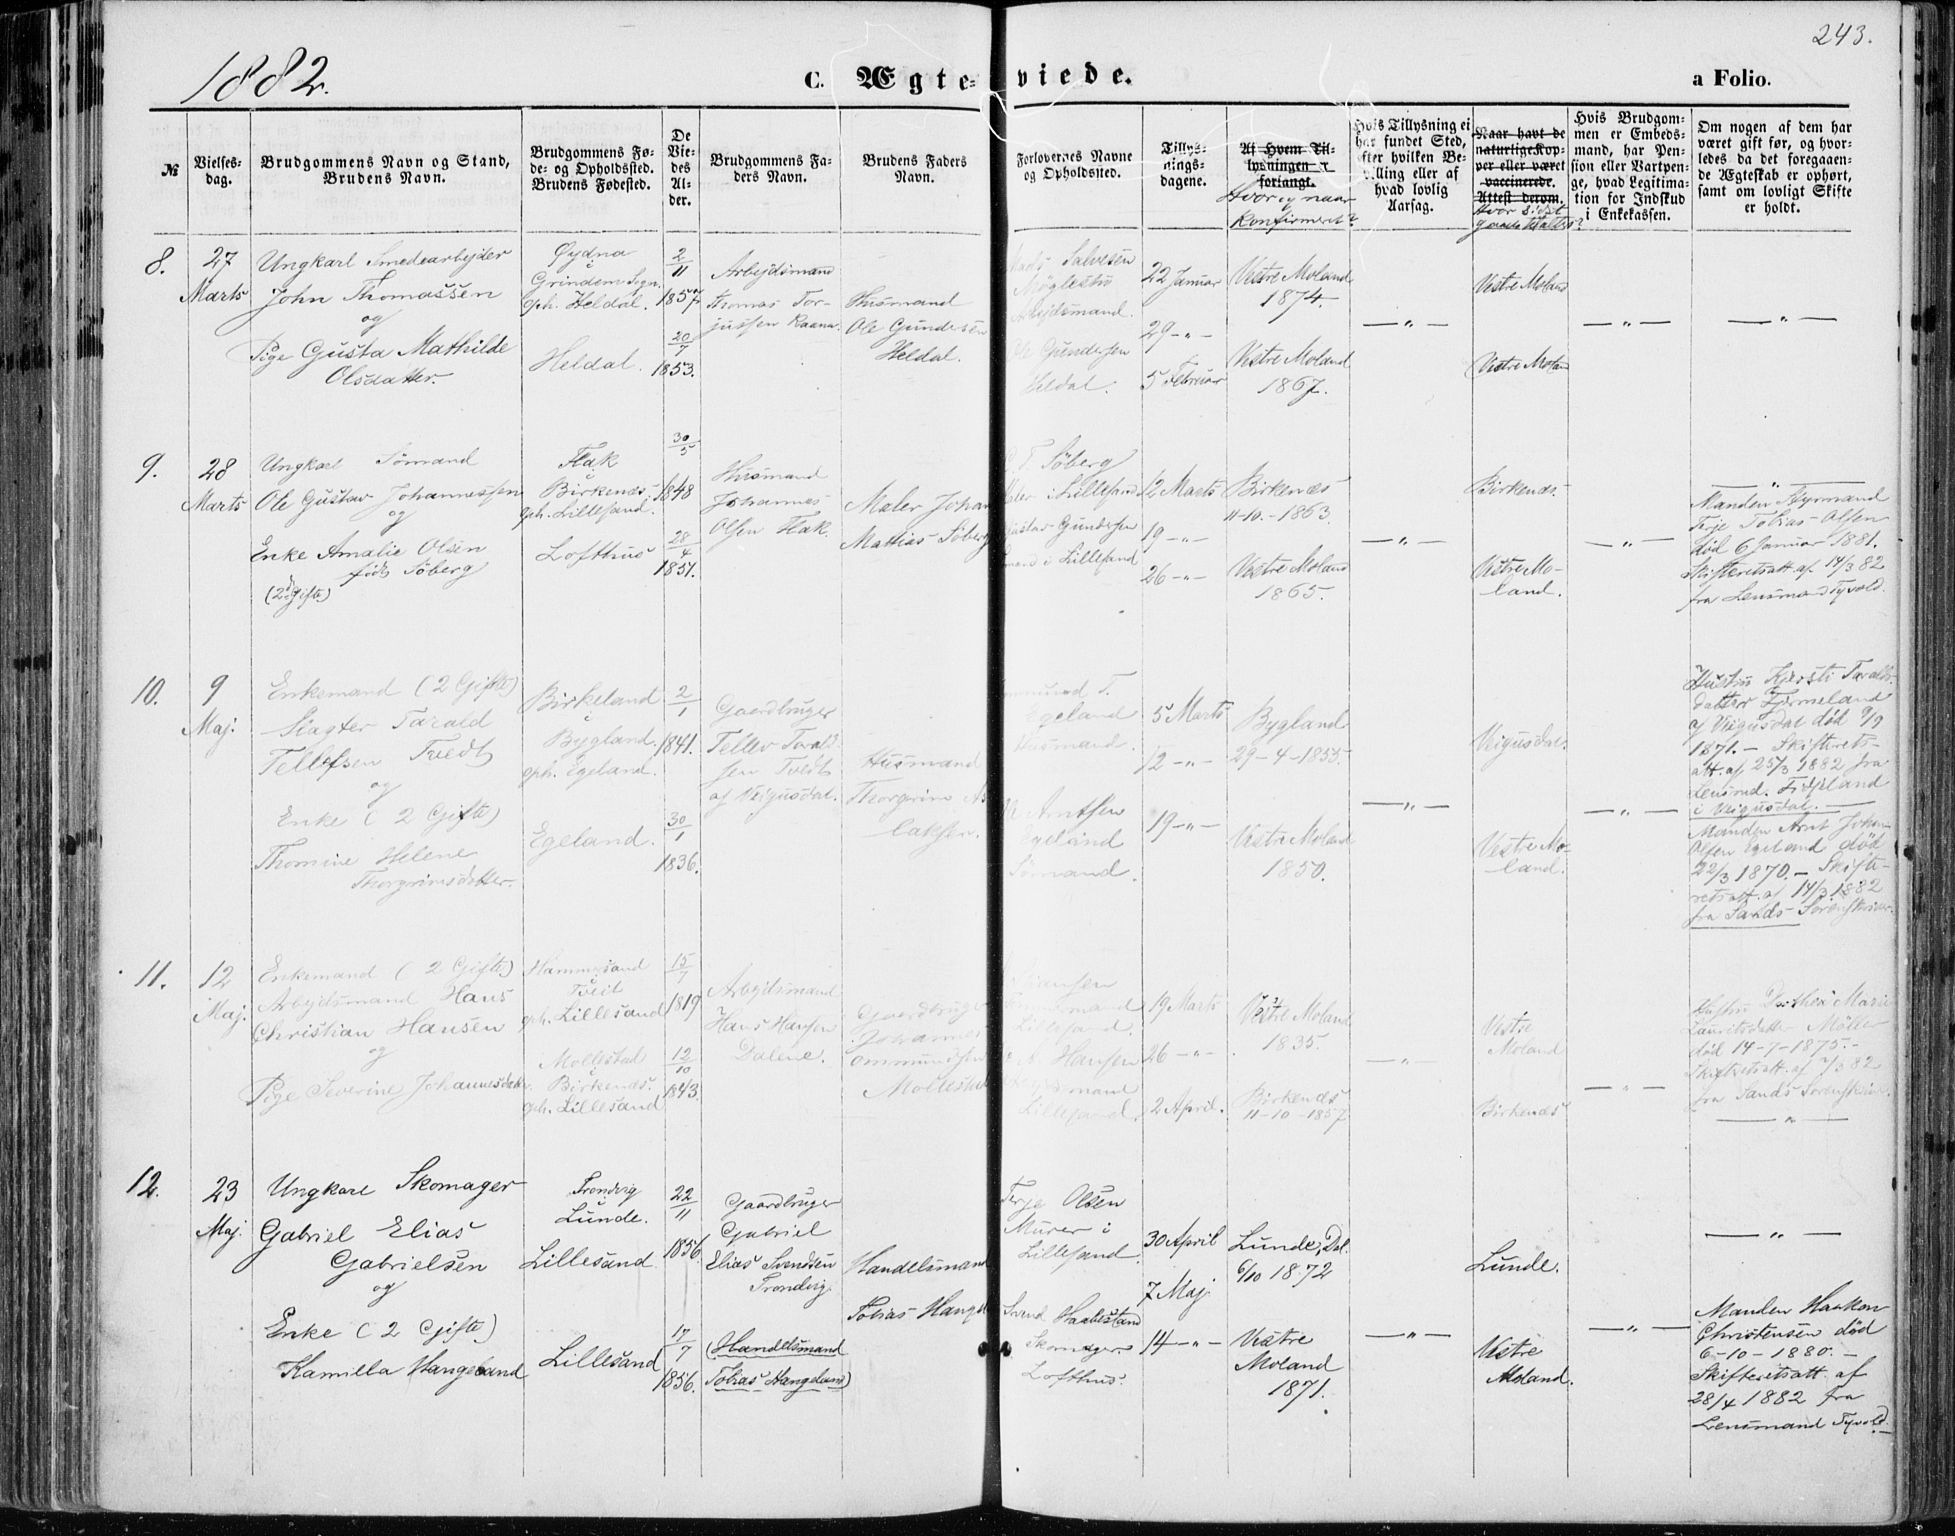 1882.
C. Ægte-
viede.
243.
a Folio.
№
Vielses-
dag.
Brudgommens Navn og Stand,
Brudens Navn.
Brudgommens Fø-
de- og Opholdssted.
Brudens Fødested.
De
Vie-
des
Al-
der.
Brudgommens Fa-
ders Navn.
Brudens Faders
Navn.
Forlovernes Navne
og Opholdssted.
Tillys-
nings-
dagene.
Af Hvem Til-
lysningen er
forlangt.
Hvor og naar
Konfirmeret?
Hvis Tillysning ei
har fundet Sted,
efter hvilken Be-
villing eller af
hvad lovlig
Aarsag.
Naar havt de
naturlige Kop-
per eller været
vaccinerede.
Attest derom.
Hvor sidst
Hvis Brudgom-
men er Embeds-
mand, har Pen-
sion eller Vartpen-
ge, hvad Legitima-
tion for Indskud
i Enkekassen.
Om nogen af dem har
været gift før, og hvor-
ledes da det foregaaen-
de Ægteskab er ophørt,
samt om lovligt Skifte
er holdt.
8.
27
Marts
Ungkarl Smedearbejder
John Thomassen
og
Pige Gusta Mathilde
Olsdatter.
Øydna
i
Grindem Sogn.
oph. Heldal.
Heldal.
2/11
1857
20/7
1853.
Arbejdsmand
Thomas Tor-
jussen Raana.
Husmand
Ole Gundersen
Heldal.
Mads Salvesen
Arbejdsmand.
Gundersen
Heldal.
22 Januar
29 -„-
5 Februar
Vestre Moland
1874.
Vestre Moland
1867.
— „ —
Vestre Moland
Vestre Moland
— „ —
— „ —
9.
28
Marts
Ungkarl Sømand
Ole Gustav Johannessen
og
Enke Amalie Olsen
født Søberg
(2d Gifte)
Flak
i
Birkenes
oph. Lillesand.
Lofthus
30/5
1848
28/4
1851.
Husmand
Johannes
Olsen Flak.
Maler Johan
Mathias Søberg
T. Søberg
Maler i Lillesand
Gustav Gundersen
Sømand i Lillesand
12 Marts
19 -„-
26 -„-
Birkenæs
11-10.-1863
Vestre Moland
1865.
— „ —
Birkenæs.
Vestre Mo-
land.
— „ —
— „ —
Manden Styrmand
Terje Tobias Olsen
død 6 Januar 1881.
Skifteretsatt. af 14/3 82
fra Lensmand Tyvold.
10.
9
Maj.
Enkemand (2 Gifte)
Slagter Tarald
Tellefsen Tvedt
og
Enke (2 Gifte)
Thomine Helene
Thorgrimsdatter.
Birkeland
i
Bygland.
oph. Egeland.
Egeland.
2/1
1841.
30/1
1836.
Gaardbruger
Tellev Tarald-
sen Tvedt
af Veigusdal.
Husmand
Thorgrim As-
laksen.
T.
Egeland
Husmand.
Arntsen
Egeland
Sømand.
5 Marts
12 -„-
19 -„-
Bygland
29-4-1855.
Vestre Moland
1850.
— „ —
Veigusdal.
Vestre Mo-
land.
— „ —
Hustru Kjersti Taralds-
datter Fjermeland
af Veigusdal død 9/9
1871. - Skifterets-
att. af 25/3 1882 fra
Lensmd. Fidjeland
i Veigusdal.
Manden Arnt Johan
Olsen Egeland død
22/3 1870. - Skifte-
retsatt. af 14/3 1882
fra Sands Sorenskriver.
11.
12
Maj.
Enkemand (2 Gifte)
Arbejdsmand Hans
Christian Hansen
og
Pige Severine Johannesdatter.
Hammersand
i
Tveit
oph. Lillesand
Mollestad
i
Birkenæs.
oph. Lillesand
15/7
1819
12/10
1843.
Arbejdsmand
Hans Hansen
Dalene.
Gaardbruger
Johannes
Ommundsen
Mollestad
Lillesand.
Hansen
Lillesand.
19 Marts
26 -„-
2 April.
Vestre Moland
1835.
Birkenæs
11-10-1857
— „ —
Vestre
Moland
Birkenæs
— „ —
Hustru Dorthea Marie
Lauritsdatter Møller
død 14-7-1875.-
Skifteretsatt. af 7/3 82
fra Sands Sorenskriver.
— „ —
12.
23
Maj.
Ungkarl Skomager
Gabriel Elias
Gabrielsen
og
Enke (2 Gifte)
Kamilla Hangeland
Trondvig
Lunde.
Lillesand
Lillesand
22/11
1856.
17/7
1856.
Gaardbruger
Gabriel
Elias Svendsen
Trondvig.
(Handelsmand
Tobias Hangeland)
Handelsmand
Tobias Hangel
Terje Olsen
Murer i
Lillesand.
Svend Haabestand
Skomager
Lofthus.
30 April
7 Maj.
14 -„-
Lunde, Dal.
6/10 1872
Vestre
Moland
1871.
— „ —
Lunde.
Vestre
Moland.
— „ —
— „ —
Manden Haakon
Christensen død
6-10-1880. -
Skifteretsatt. af
28/4 1882 fra
Lensmand Tyvold.